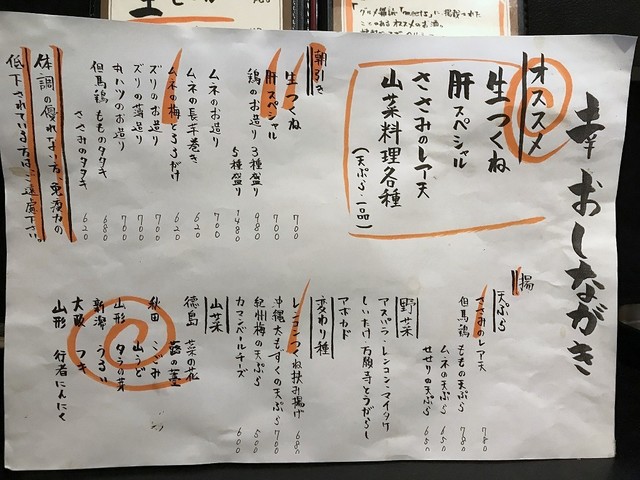 幸 おしながき
オススメ
生つくね
肝スペシャル
ささみのレア天
山菜料理各種
(天ぷら・一品)
朝引き
生つくね 700
肝スペシャル 700
鶏のお造り 3種盛り 980
5種盛り 1480
ムネのお造り 700
ムネの長芋巻き 620
ムネの梅とろろがけ 620
ズリのお造り 700
ズリの薄造り 700
丸ハツのお造り 700
但馬鶏 もものタタキ 680
ささみのタタキ 620
体調の優れない方、免疫力の
低下されている方はご遠慮下さい。
揚
天ぷら
ささみのレア天 780
但馬鶏 ももの天ぷら 780
ムネの天ぷら 650
せせりの天ぷら 650
野菜
アスパラ・レンコン・マイタケ
しいたけ 万願寺とうがらし
アボカド
変わり種
レンコンつくね挟み揚げ 680
沖縄太もずくの天ぷら 700
紀州梅の天ぷら 500
カマンベールチーズ 600
山菜
徳島 菜の花
蕗の薹
秋田 こごみ
山うど
山形 タラの芽
新潟 つくし
大阪 つき
山形 行者にんにく